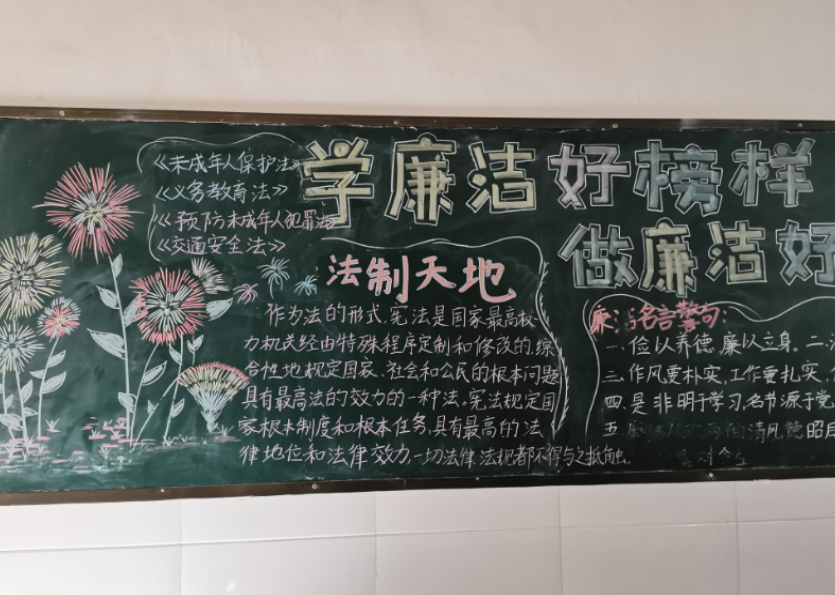 学廉洁好榜样
做廉洁好
《未成年人保护法》
《义务教育法》
《预防未成年人犯罪法》
《交通安全法》
法制天地
作为法的形式,宪法是国家最高权
力机关经由特殊程序定制和修改的,综
合性地规定国家、社会和公民的根本问题
具有最高法的效力的一种法,宪法规定国
家根本制度和根本任务,具有最高的法
律地位和法律效力一切法律法规都不得与之抵触。
廉洁名言警句:
一.俭以养德,廉以立身。二.
三.作风要朴实,工作要扎实,
四.是非明于学习,名节源于党
五.清风德昭后